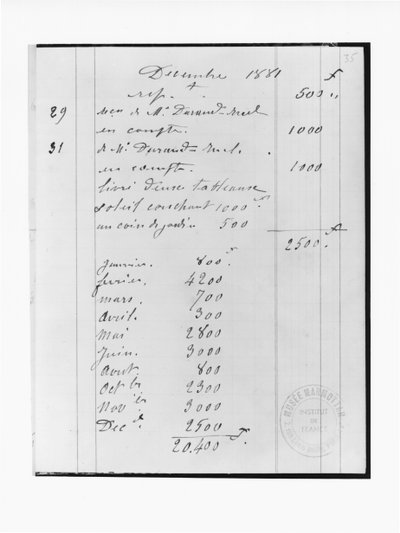 35
Decembre 1881 f
rep. 500 "
29 recu de Mr. Durand-Ruel
en compte. 1000
31 de Mr. Durand-Ruel.
en compte. 1000
livré deux tableaux
soleil couchant 1000 f
un coin de jardin 500
2500. f
Janvier. 800. f
fevrier. 4200
mars. 700
Avril. 300
Mai 2800
Juin. 3000
Aout. 800
Oct bre 2300
Nov bre 3000
Dec bre 2500
20.400 f.
MUSÉE MARMOTTAN
INSTITUT
DE
FRANCE